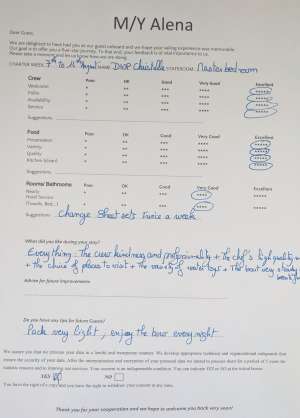 M/Y Alena
Dear Guest,
We are delighted to have had you as our guest onboard and we hope your sailing experience was memorable.
Our goal is to offer you a five-star journey. To that end, your feedback is of vital importance to us.
Please take a moment and let us know how we are doing.
CHARTER WEEK: 7th to 14th August NAME: DROP Christelle STATEROOM: Master bedroom
Crew Poor OK Good Very Good Excellent
Welcome * ** *** **** *****
Polite * ** *** **** *****
Availability * ** *** **** *****
Service * ** *** **** *****
Suggestions:
Food Poor OK Good Very Good Excellent
Presentation * ** *** **** *****
Variety * ** *** **** *****
Quality * ** *** **** *****
Kitchen Island * ** *** **** *****
Suggestions:
Rooms/ Bathrooms Poor OK Good Very Good Excellent
Hotel Service * ** *** **** *****
(Towels, Bed...) * ** *** **** *****
Suggestions: Change Sheet sets twice a week
What did you like during your stay?
Everything: The crew kindness and professionality + the chef's high quality
+ the choice of places to visit + the variety of water toys + The boat very steady
Advise for future improvement:
Do you have any tips for future Guests?
Pack very light; enjoy the bow every night
We assure you that we process your data in a lawful and transparent manner. We develop appropriate technical and organisational safeguards that
ensure the security of your data. After the anonymization and encryption of your personal data we intend to process them for a period of 5 years for
statistic reasons and to improve our services. Your consent is an indispensable condition. You can indicate YES or NO at the ticked boxes.
YES NO
You have the right of and you have the right to withdraw your consent in any time.
Thank you for your cooperation and we hope to welcome you back very soon!